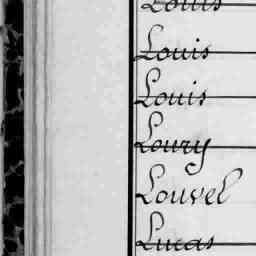 Louis
Louis
Louis
Loury
Louvel
Lucas